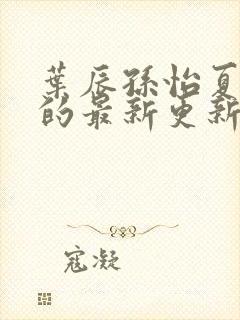 葉辰孫怡夏
的最新更新
寇凝